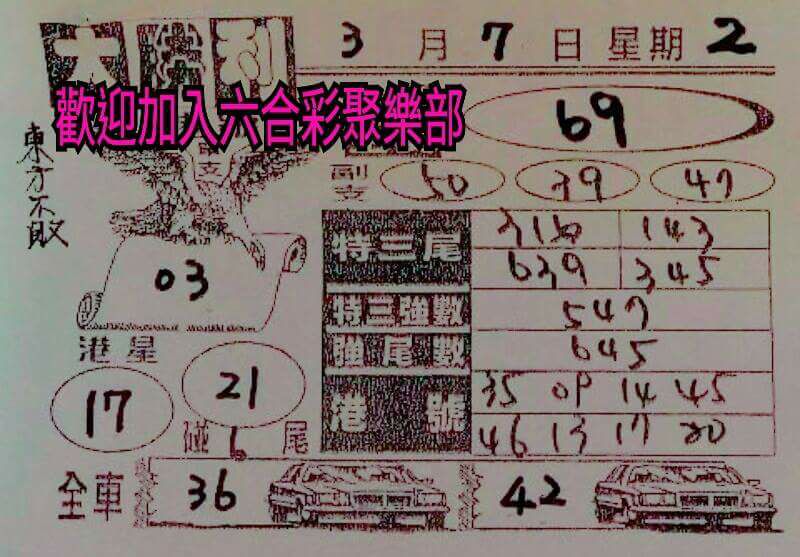 大勝利
3月7日星期2
歡迎加入六合彩聚樂部
69
東方不敗
支
副支 50 39 47
特三尾 143
639 345
03
特三強數 547
強尾數 645
港星
17 21
港號 35 09 14 45
46 13 17 20
碰6尾
全車 36 42